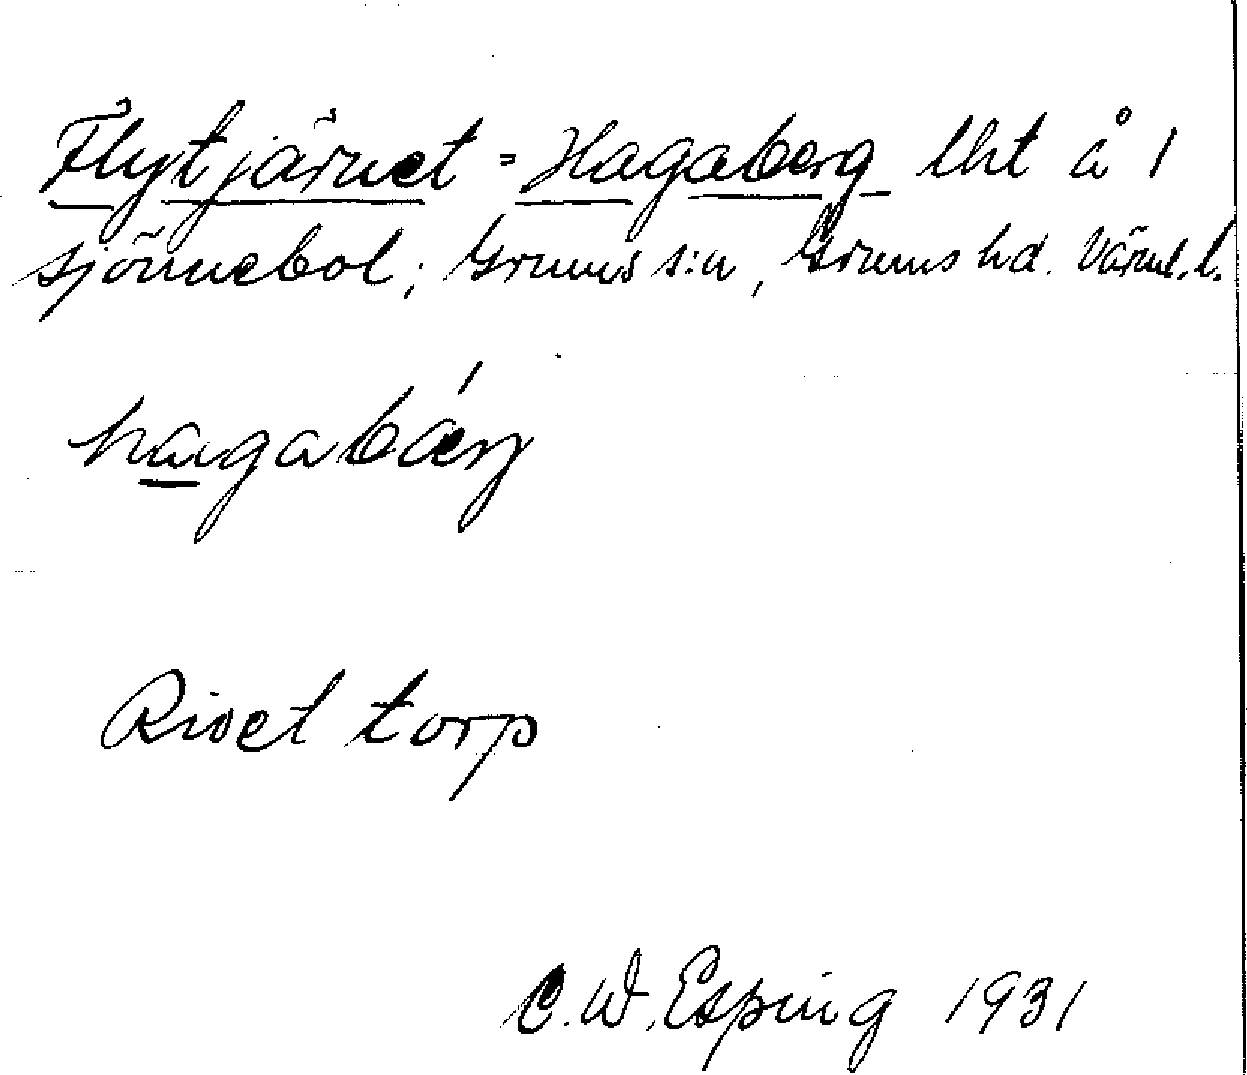 Flytjärnet = Hagaberg lht å 1
Sjönnebol; Grums s:n, Grums hd. Värml. l.
hagabárj
Rivet torp
C. W. Esping 1931